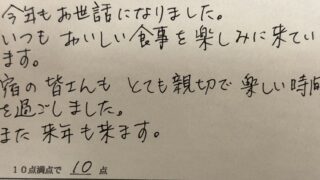 今年もお世話になりました。
いつも おいしい食事を楽しみに来てい
ます。
宿の皆さんも とても親切で 楽しい時間
を過ごしました。
また 来年も来ます。
10点満点で 10 点